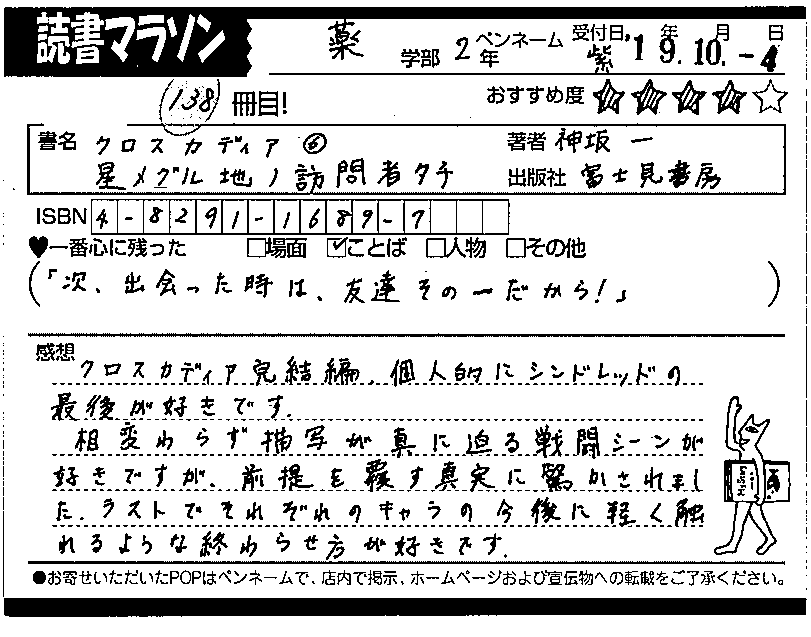 読書マラソン
薬 学部 2年 ペンネーム 紫 受付日 '19.10.-4 年 月 日
138 冊目! おすすめ度 ★★★★☆
書名 クロスカディア⑥ 著者 神坂 一
星メグル地ノ訪問者タチ 出版社 富士見書房
ISBN 4-8291-1689-7
♥一番心に残った □場面 ☑ことば □人物 □その他
(「次、出会った時は、友達その一だから!」)
感想
クロスカディア完結編。個人的にシンドレッドの
最後が好きです。
相変わらず描写が真に迫る戦闘シーンが
好きですが、前提を覆す真実に驚かされまし
た。ラストでそれぞれのキャラの今後に軽く触
れるような終わらせ方が好きです。
●お寄せいただいたPOPはペンネームで、店内で掲示、ホームページおよび宣伝物への転載をご了承ください。